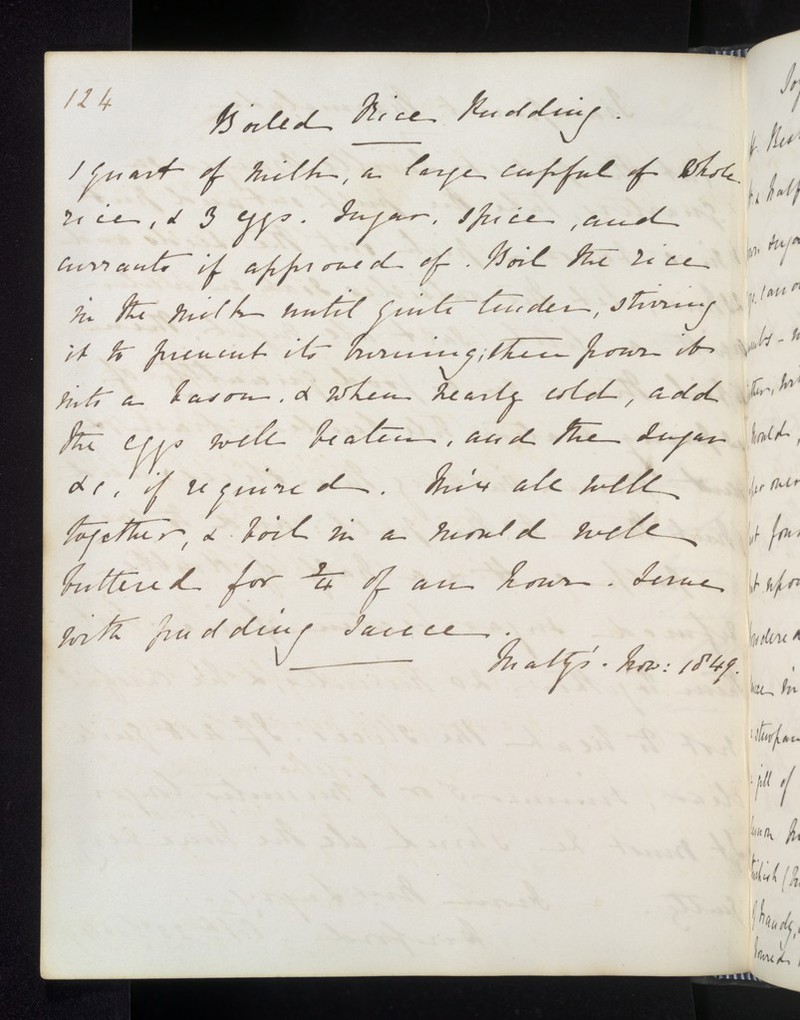 124
Boiled Rice Pudding.
1 quart of Milk, a large cupful of whole
rice, & 3 eggs. Sugar, spice, and
currants if approved of. Boil the rice
in the Milk until quite tender, stirring
it to prevent its burning; then pour it
into a bason, & when nearly cold, add
the eggs well beaten, and the sugar
&c, if required. Mix all well
together, & boil in a mould well
buttered for ¾ of an hour. Serve
with pudding sauce.
Matty's. Nov: 1849.